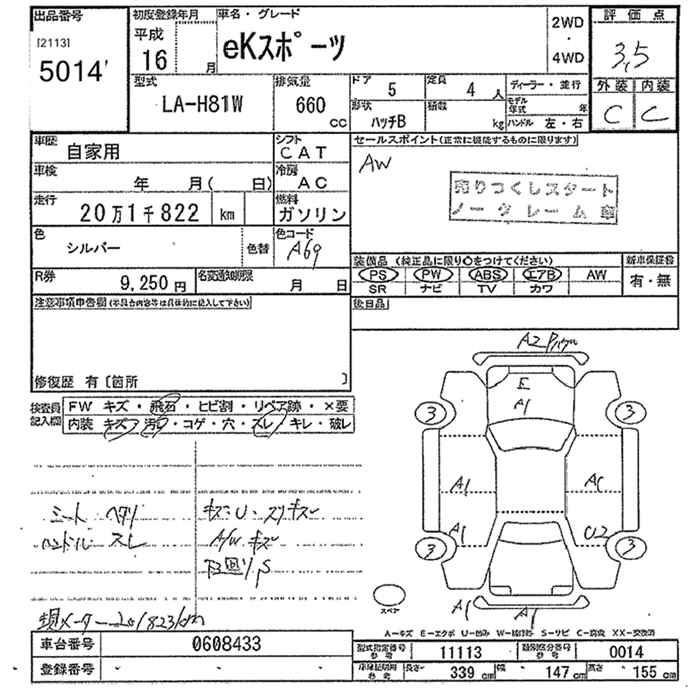 出品番号 初度登録年月 車名・グレード 評価点
[2113] 平成 eKスポーツ 2WD
5014' 16 月 ・ 4WD 3,5
型式 排気量 ドア 5 定員 4 人 ディーラー・並行 外装 内装
LA-H81W 660 cc 形状 ハッチB 積載 kg モデル年式 年 C C
ハンドル 左・右
車歴 自家用 シフト CAT セールスポイント(正常に機能するものに限ります)
車検 年 月( 日) 冷房 AC AW
売りつくしスタート
走行 20万1千822 km 燃料 ガソリン ノークレーム
色 シルバー 色替 色コード A69
装備品 (純正品に限り○をつけてください) 新車保証書
PS PW ABS エアB AW 有・無
R券 9,250円 名変通知期限 月 日 SR ナビ TV カワ
注意事項申告欄(不具合内容等は具体的に記入して下さい) 後日品
修復歴 有〔箇所 〕
検査員記入欄 FW キズ・飛石・ヒビ割・リペア跡・×要
内装 キズ・汚れ・コゲ・穴・スレ・キレ・破レ
A2
E
A1
3 3
A1 A1
A1 U2
3 3
シート ヘタリ キズ・U・スリキズ
ハンドル スレ A/W キズ
下回り S
スペア
A1 A1
メーター 201823km
A-キズ E-エクボ U-凹み W-補修跡 S-サビ C-腐食 XX-交換済
車台番号 0608433 型式指定番号 参考 11113 類別区分番号 参考 0014
登録番号 - - - 長さ 339 cm 幅 147 cm 高さ 155 cm